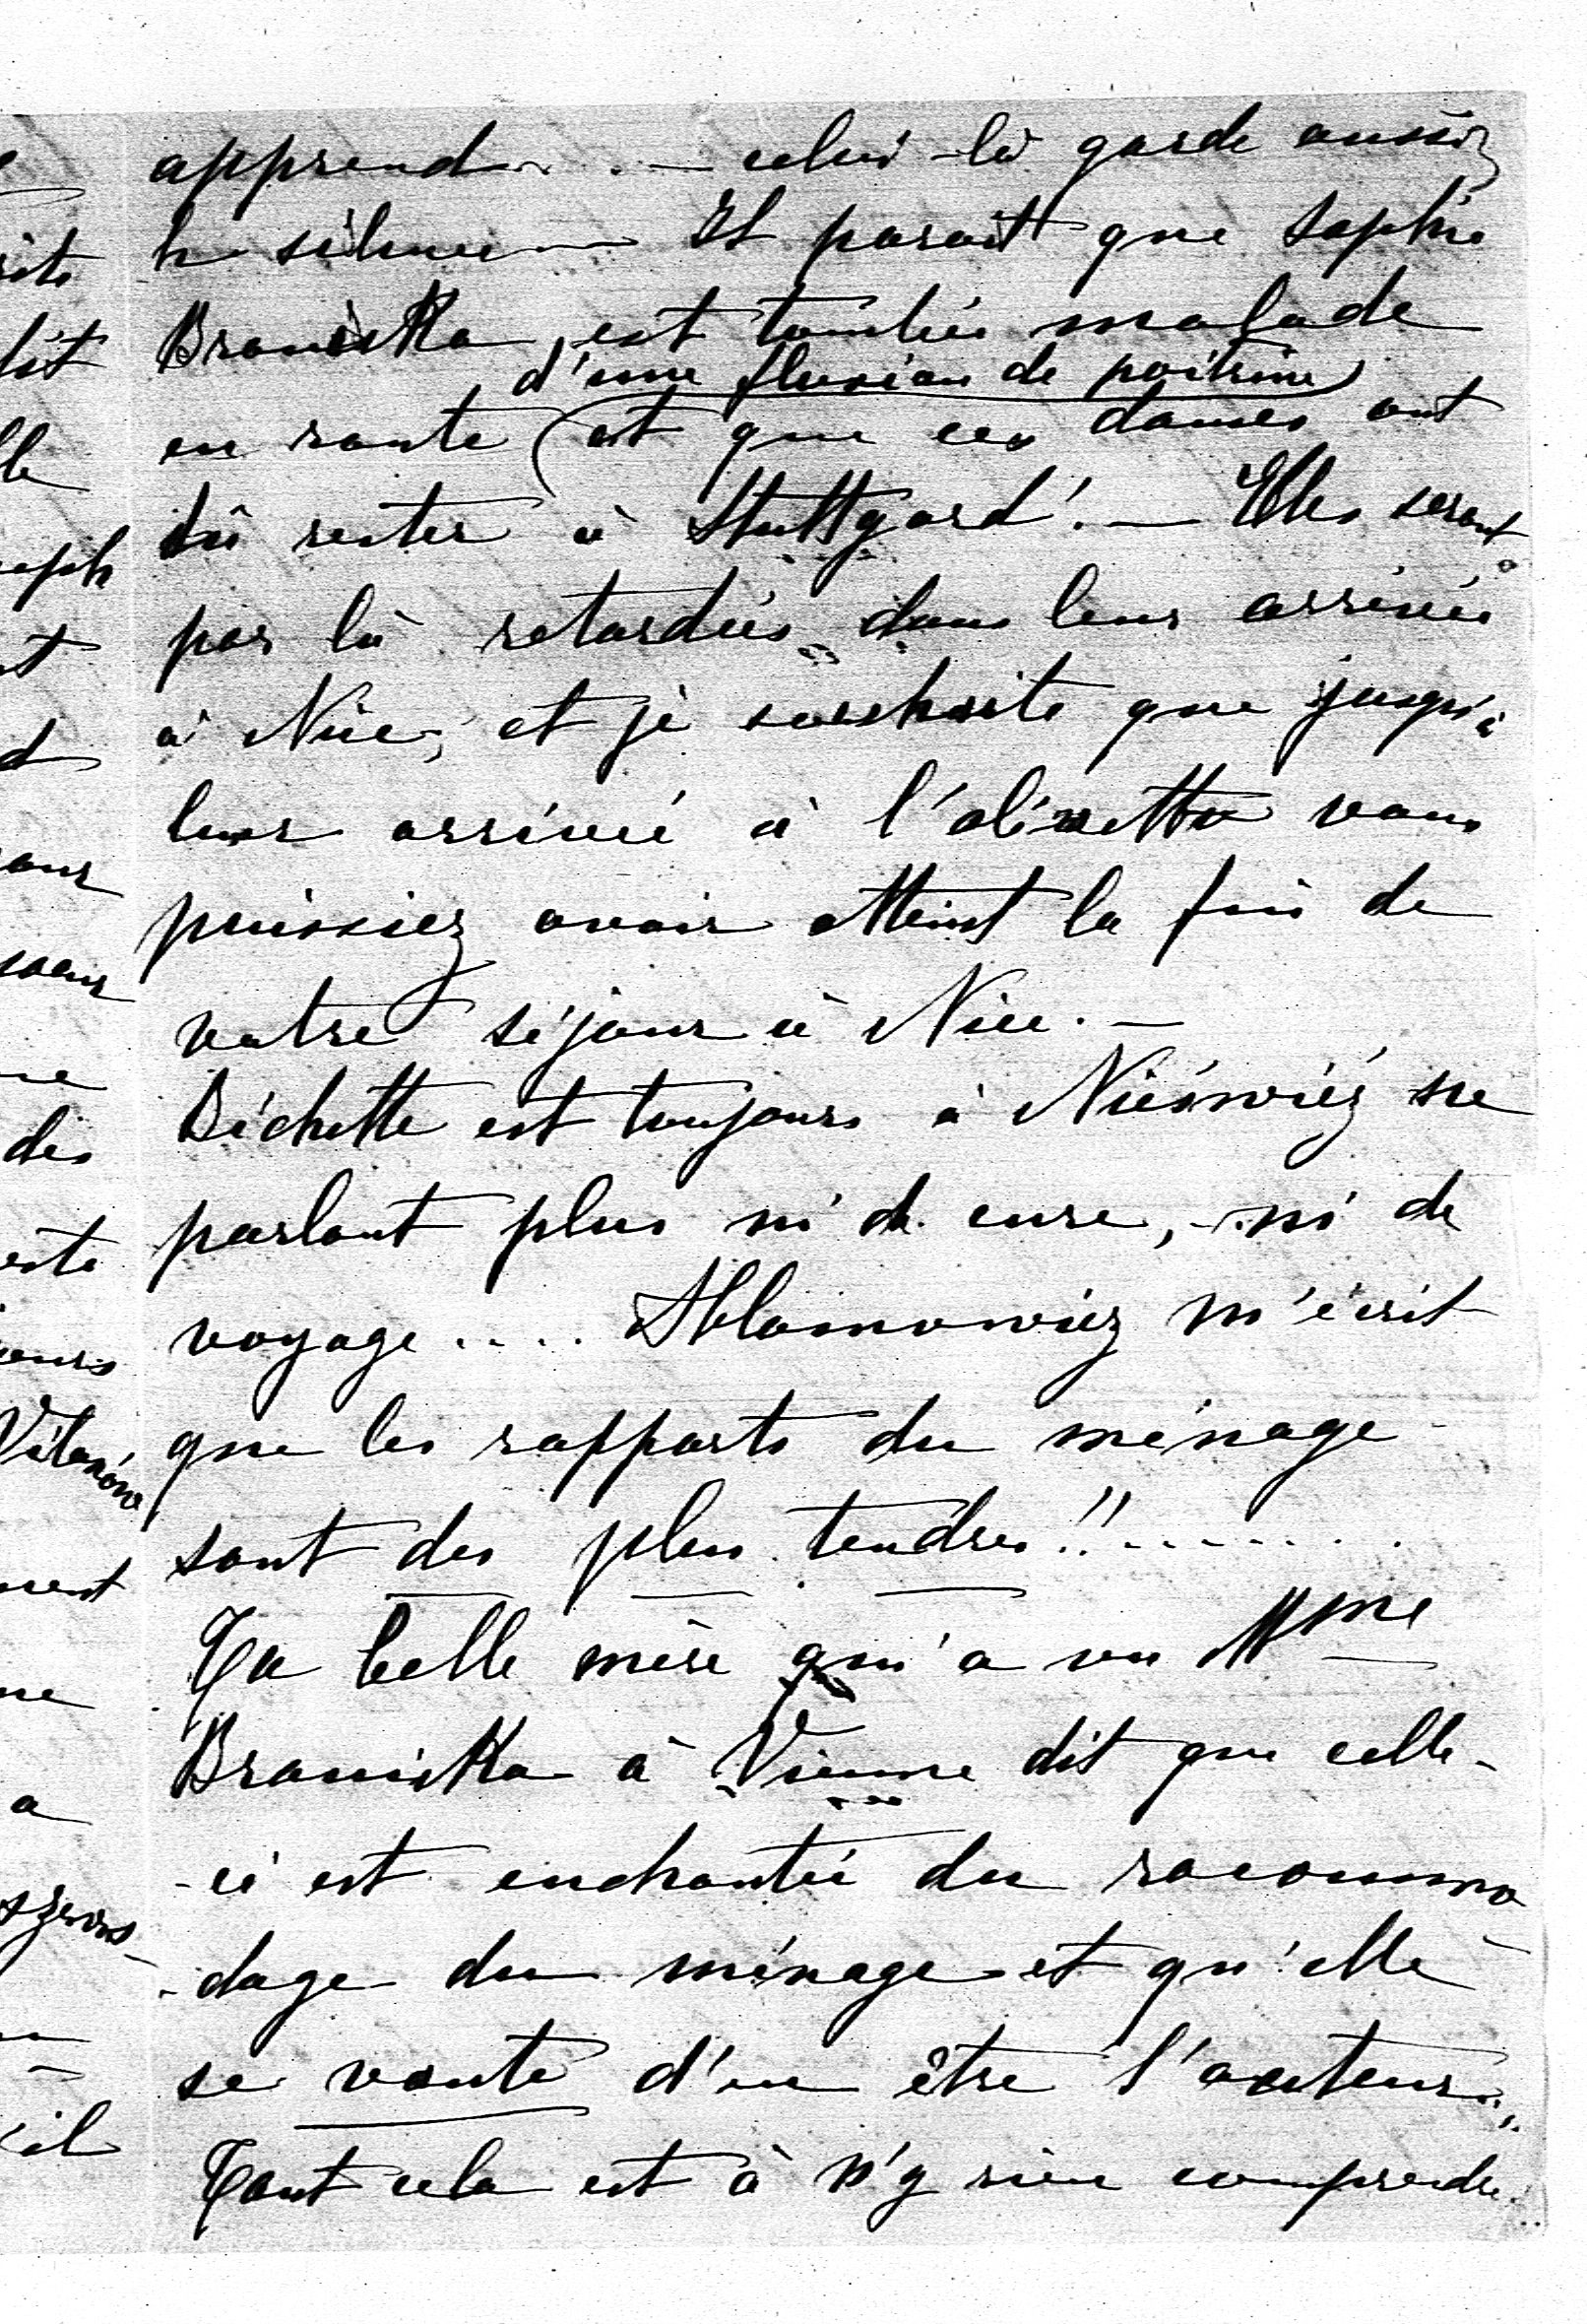 apprend . . — celui-là garde aussi
le silence — Il parait que Sophie
Braniska, est tombée malade
d'une fluxion de poitrine
en route (et que ces dames ont
dû rester à Stuttgard! — Elles seront
par là retardées dans leur arrivée
à Nice; et je souhaite que jusqu'à
leur arrivée à l'olivetto vous
puissiez avoir atteint la fin de
votre séjour à Nice. —
Bichette est toujours à Nieśwież ne
parlant plus ni de cure, ni de
voyage .... Ablamowicz m'écrit
que les rapports du ménage
sont des plus tendres!! ........
Ta belle mère qui a vu Mme
Braniska à Vienne dit que celle-
-ci est enchantée du racommo
-dage du ménage et qu'elle
se vante d'en être l'auteur..,,
Tout cela est à n'y rien comprendre..